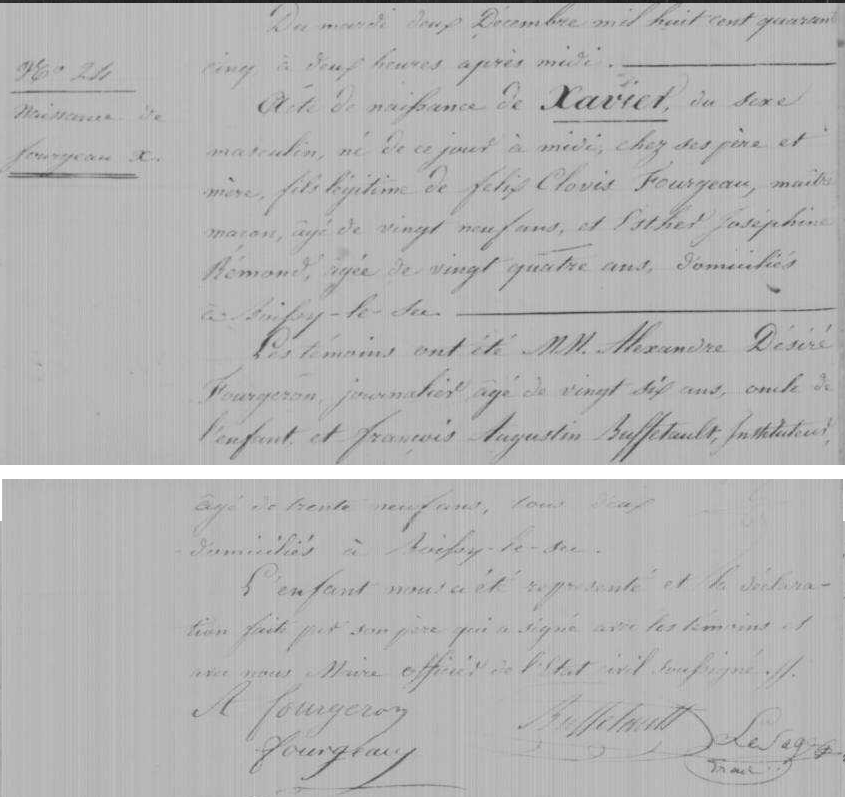 Du mardi deux Décembre mil huit cent quarante
cinq à deux heures après midi.
No 24
Naissance de
fourgeau X.
Acte de naissance de Xavier, du sexe
masculin, né de ce jour à midi, chez ses père et
mère, fils légitime de felix Clovis Fourgeau, maître
maçon, âgé de vingt neuf ans, et Esther Joséphine
Rémond, âgée de vingt quatre ans, domiciliés
à Boissy-le-sec.
Les témoins ont été MM. Alexandre Désiré
Fourgeron, journalier, âgé de vingt six ans, oncle de
l'enfant, et françois Augustin Buffetault, Instituteur,
âgé de trente neuf ans, tous deux
domiciliés à Boissy-le-sec.
L'enfant nous a été représenté et la déclara-
tion faite par son père qui a signé avec les témoins et
avec nous Maire officier de l'Etat civil soussigné.
A fourgeron
Buffetault
fourgeau
LeSage